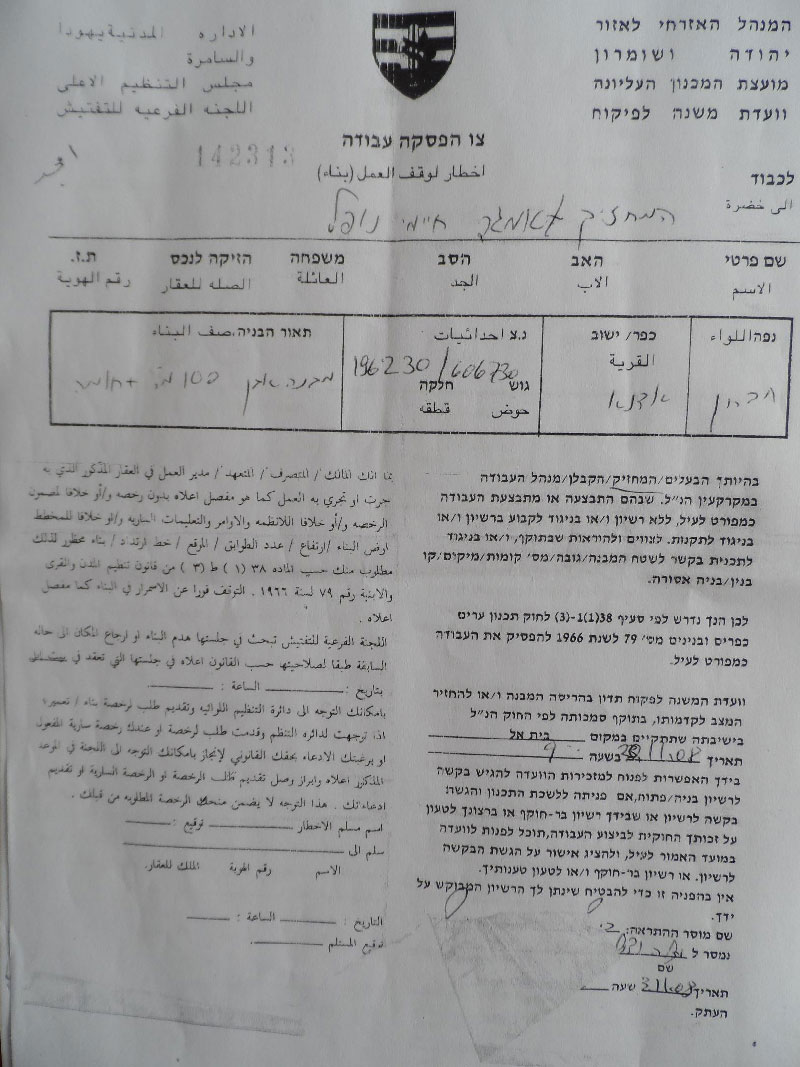 המנהל האזרחי לאזור
יהודה ושומרון
מועצת המכנון העליונה
וועדת משנה לפיקוח
الاداره المدنية يهودا
والسامرة
مجلس التنظيم الاعلى
اللجنه الفرعيه للتفتيش
צו הפסקה עבודה
اخطار لوقف العمل (بناء)
142313
לכבוד
الى حضرة
המחזיק
שם פרטי האב הסב משפחה הזיקה לנכס ת.ז.
الاسم الاب الجد العائلة الصله للعقار رقم الهوية
נפה اللواء כפר/ ישוב נ.צ احداثيات תאור הבניה, صف البناء
القرية
196230/606730
חברון אדנא גוש חלקה
حوض قطقه
בהיותך הבעלים/המחזיק/הקבלן/מנהל העבודה
במקרקעין הנ"ל. שבהם התבצעה או מתבצעת העבודה
כמפורט לעיל, ללא רשיון ו/או בניגוד לקבוע ברשיון ו/או
בניגוד לתקנות. לצווים ולהוראות שבתוקף, ו/או בניגוד
לתכנית בקשר לשטח המבנה/גובה/מס' קומות/מיקום/קו
בנין/בניה אסורה.
לכן הנך נדרש לפי סעיף 38(1)-(3) לחוק תכנון ערים
כפרים ובנינים מס' 79 לשנת 1966 להפסיק את העבודה
כמפורט לעיל.
וועדת המשנה לפקוח תדון בהריסה המבנה ו/או להחזיר
המצב לקדמותו, בתוקף סמכותה לפי החוק הנ"ל
בישיבתה שתתקיים במקום בית אל
תאריך 20/11/08 בשעה 9
בידך האפשרות לפנוח למזכירות הוועדה להגיש בקשה
לרשיון בניה/פתוח, אם פניתה ללשכת התכנון והגשת
בקשה לרשיון או שבידך רשיון בר-חוקף או ברצונך לטעון
על זכותך החוקית לביצוע העבודה, תוכל לפנות לוועדה
במועד האמור לעיל, ולהציג אישור על הגשת הבקשה
לרשיון. או רשיון בר-חוקף ו/או לטעון טענותיך.
אין בהפניה זו כדי להבטיח שינתן לך הרשיון המבוקש על
ידך.
שם מוסר ההתראה:
נמסר ל
שם
תאריך שעה
העתק.
بما انك المالك/ المتصرف/ المتعهد/ مدير العمل في العقار المذكور الذي به
جرت او تجري به العمل كما هو مفصل اعلاه بدون رخصه و/أو خلافا لمضمون
الرخصه و/أو خلافا للانظمه والاوامر والتعليمات الساريه و/او خلافا للمخطط
اوض البناء /ارتفاع / عدد الطوابق / الموقع / خط ارتداد / بناء محظور لذلك
مطلوب منك حسب الماده ٣٨ (١) ط (٣) من قانون تنظيم المدن والقرى
والابنية رقم ٧٩ لسنة ١٩٦٦ . التوقف فورا عن الاسمرار في البناء كما مفصل
اعلاه .
اللجنة الفرعية للتفتيش تبحث في جلستها هدم البناء او ارجاع المكان الى حاله
السابقة طبقا لصلاحيتها حسب القانون اعلاه في جلستها التي تعقد في
بتاريخ : الساعة :
بامكانك التوجه الى دائرة التنظيم اللوائيه وتقديم طلب لرخصة بناء / تعمير،
اذا توجهت لدائره التنظم وقدمت طلب لرخصة او عندك رخصة سارية المفعول
او برغبتك الادعاء بحقك القانوني لإنجاز بامكانك التوجه الى اللجنة في الموعد
المذكور اعلاه وابراز وصل تقديم طلب الرخصة او الرخصة السارية او تقديم
ادعاءاتك . هذا التوجه لا يضمن منحك الرخصة المطلوبه من قبلك .
اسم مسلم الاخطار توقيع :
سلم الى
الاسم رقم الهوية المالك للعقار.
التاريخ : الساعة :
توقيع المستلم